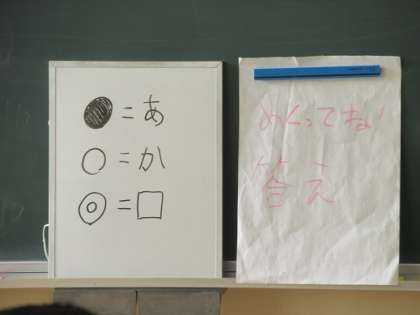 ● = あ
○ = か
◎ = □
めくってね!
答え